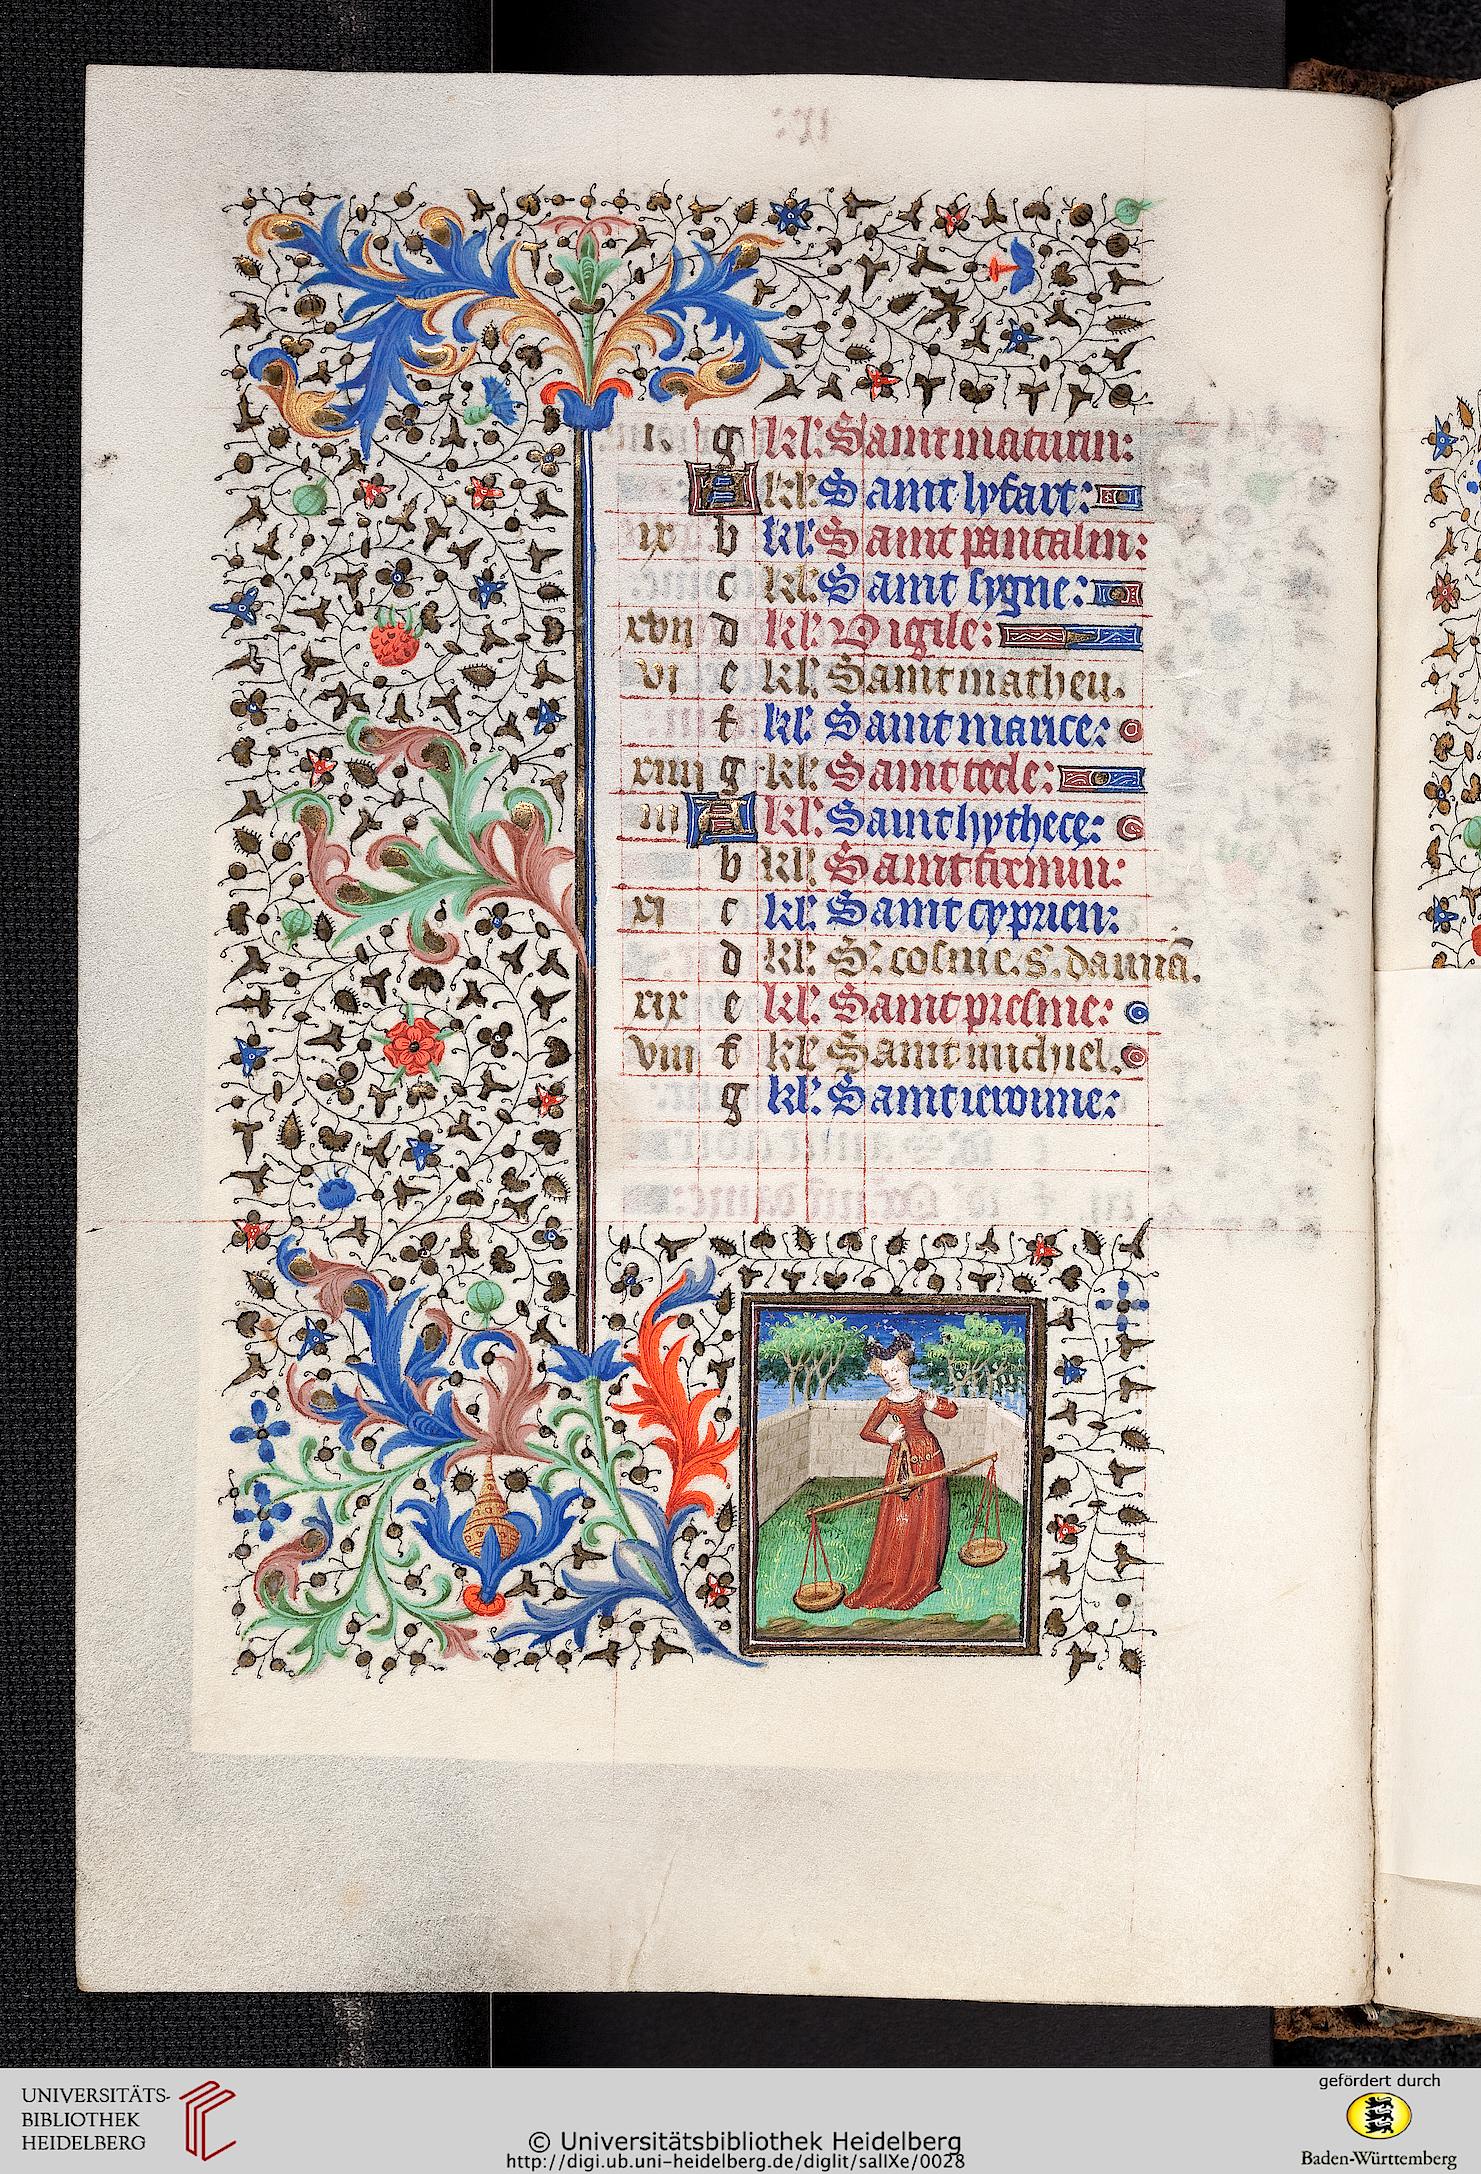 i. g kl': Saint maturin:
A kl': Saint lyfart:
ix b kl': Saint pantalin:
c kl': Saint sygne:
xvii d kl': Vigile:
vi e kl': Saint matheu.
f kl': Saint maurice:
xiiii g kl': Saint tecle:
iii A kl': Saint hythece:
b kl': Saint firmin:
xi c kl': Saint cyprien:
d kl': S'. cosme. s'. damiã.
xix e kl': Saint presme:
viii f kl': Saint michiel.
g kl': Saint ieroime:
UNIVERSITÄTS-
BIBLIOTHEK
HEIDELBERG
© Universitätsbibliothek Heidelberg
http://digi.ub.uni-heidelberg.de/diglit/sallXe/0028
gefördert durch
Baden-Württemberg